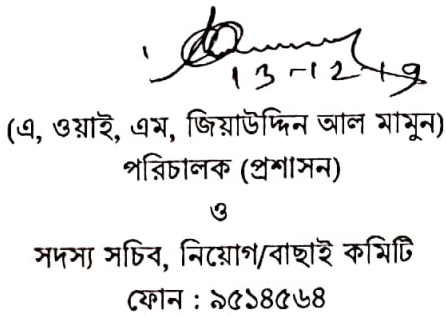 13-12-19
(এ, ওয়াই, এম, জিয়াউদ্দিন আল মামুন)
পরিচালক (প্রশাসন)
ও
সদস্য সচিব, নিয়োগ/বাছাই কমিটি
ফোন : ৯৫১৪৫৬৪